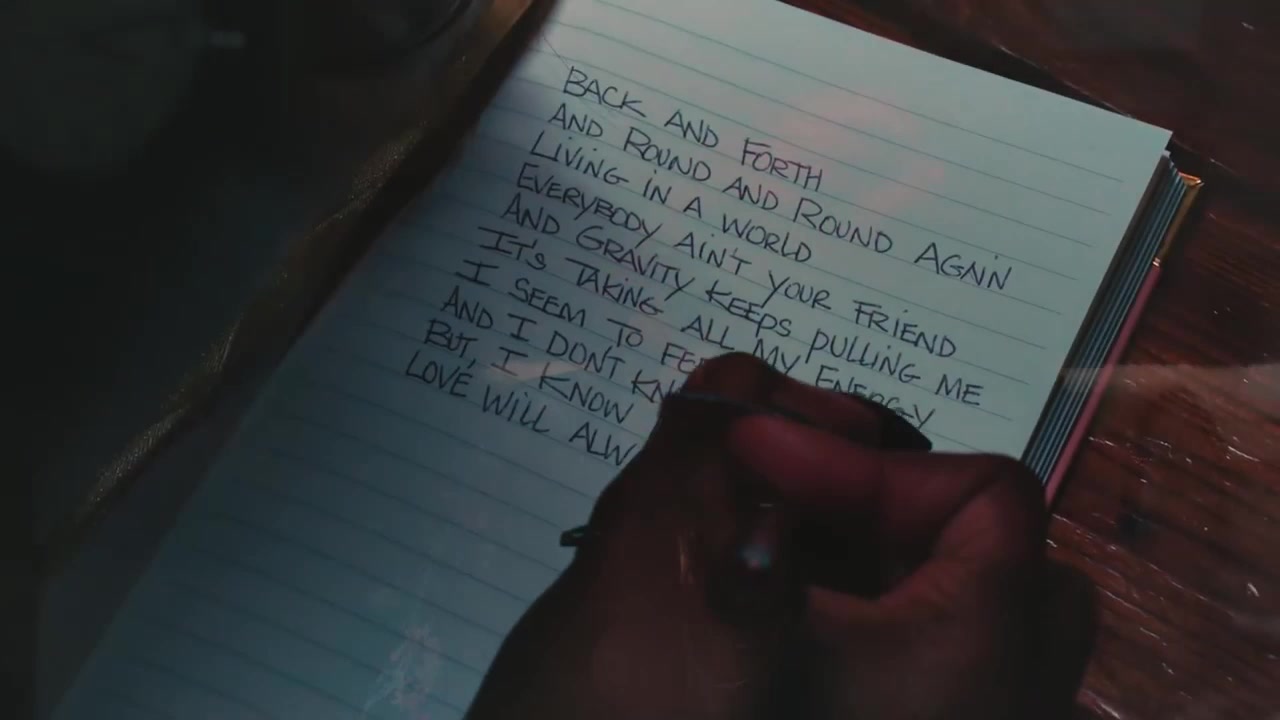 BACK AND FORTH
AND ROUND AND ROUND AGAIN
LiViNG iN A WORLD
EVERYBODY AiN'T YOUR FRiEND
AND GRAViTY KEEPS PULLiNG ME
IT'S TAKiNG ALL MY ENERGY
I SEEM TO
AND I DON'T
BUT, I KNOW
LOVE WiLL